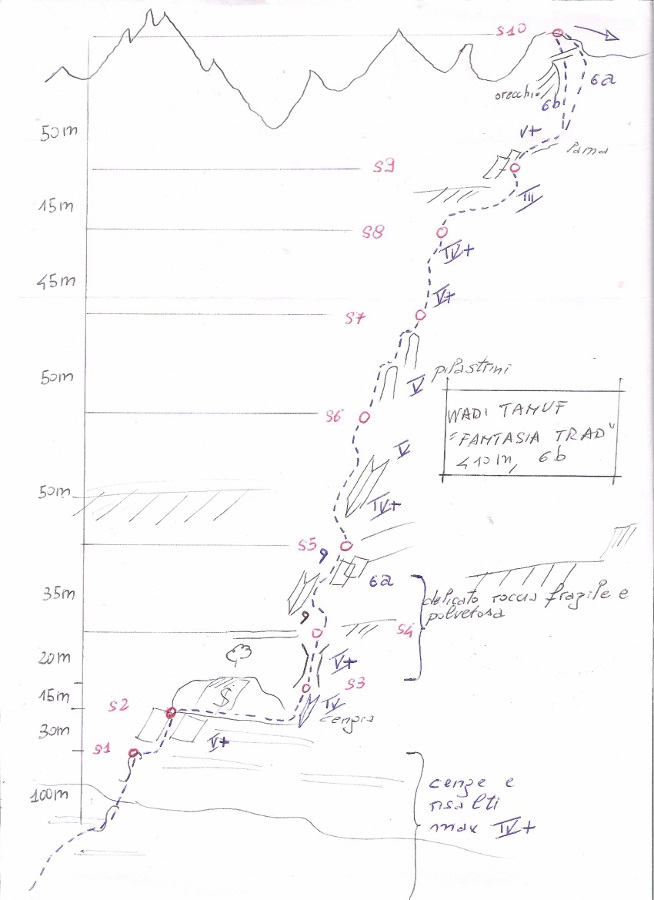 S10
6a
orecchio
6b
50m
V+
lama
S9
15m
III
S8
IV+
45m
V+
S7
pilastrini
50m
V
WADI TANUF
"FANTASIA TRAD"
410m, 6b
S6
V
50m
IV+
S5
6a
35m
delicato roccia fragile e
polverosa
S4
20m
V+
S3
15m
S
IV
S2
cengia
30m
V+
S1
100m
cenge e
risalti
max IV+